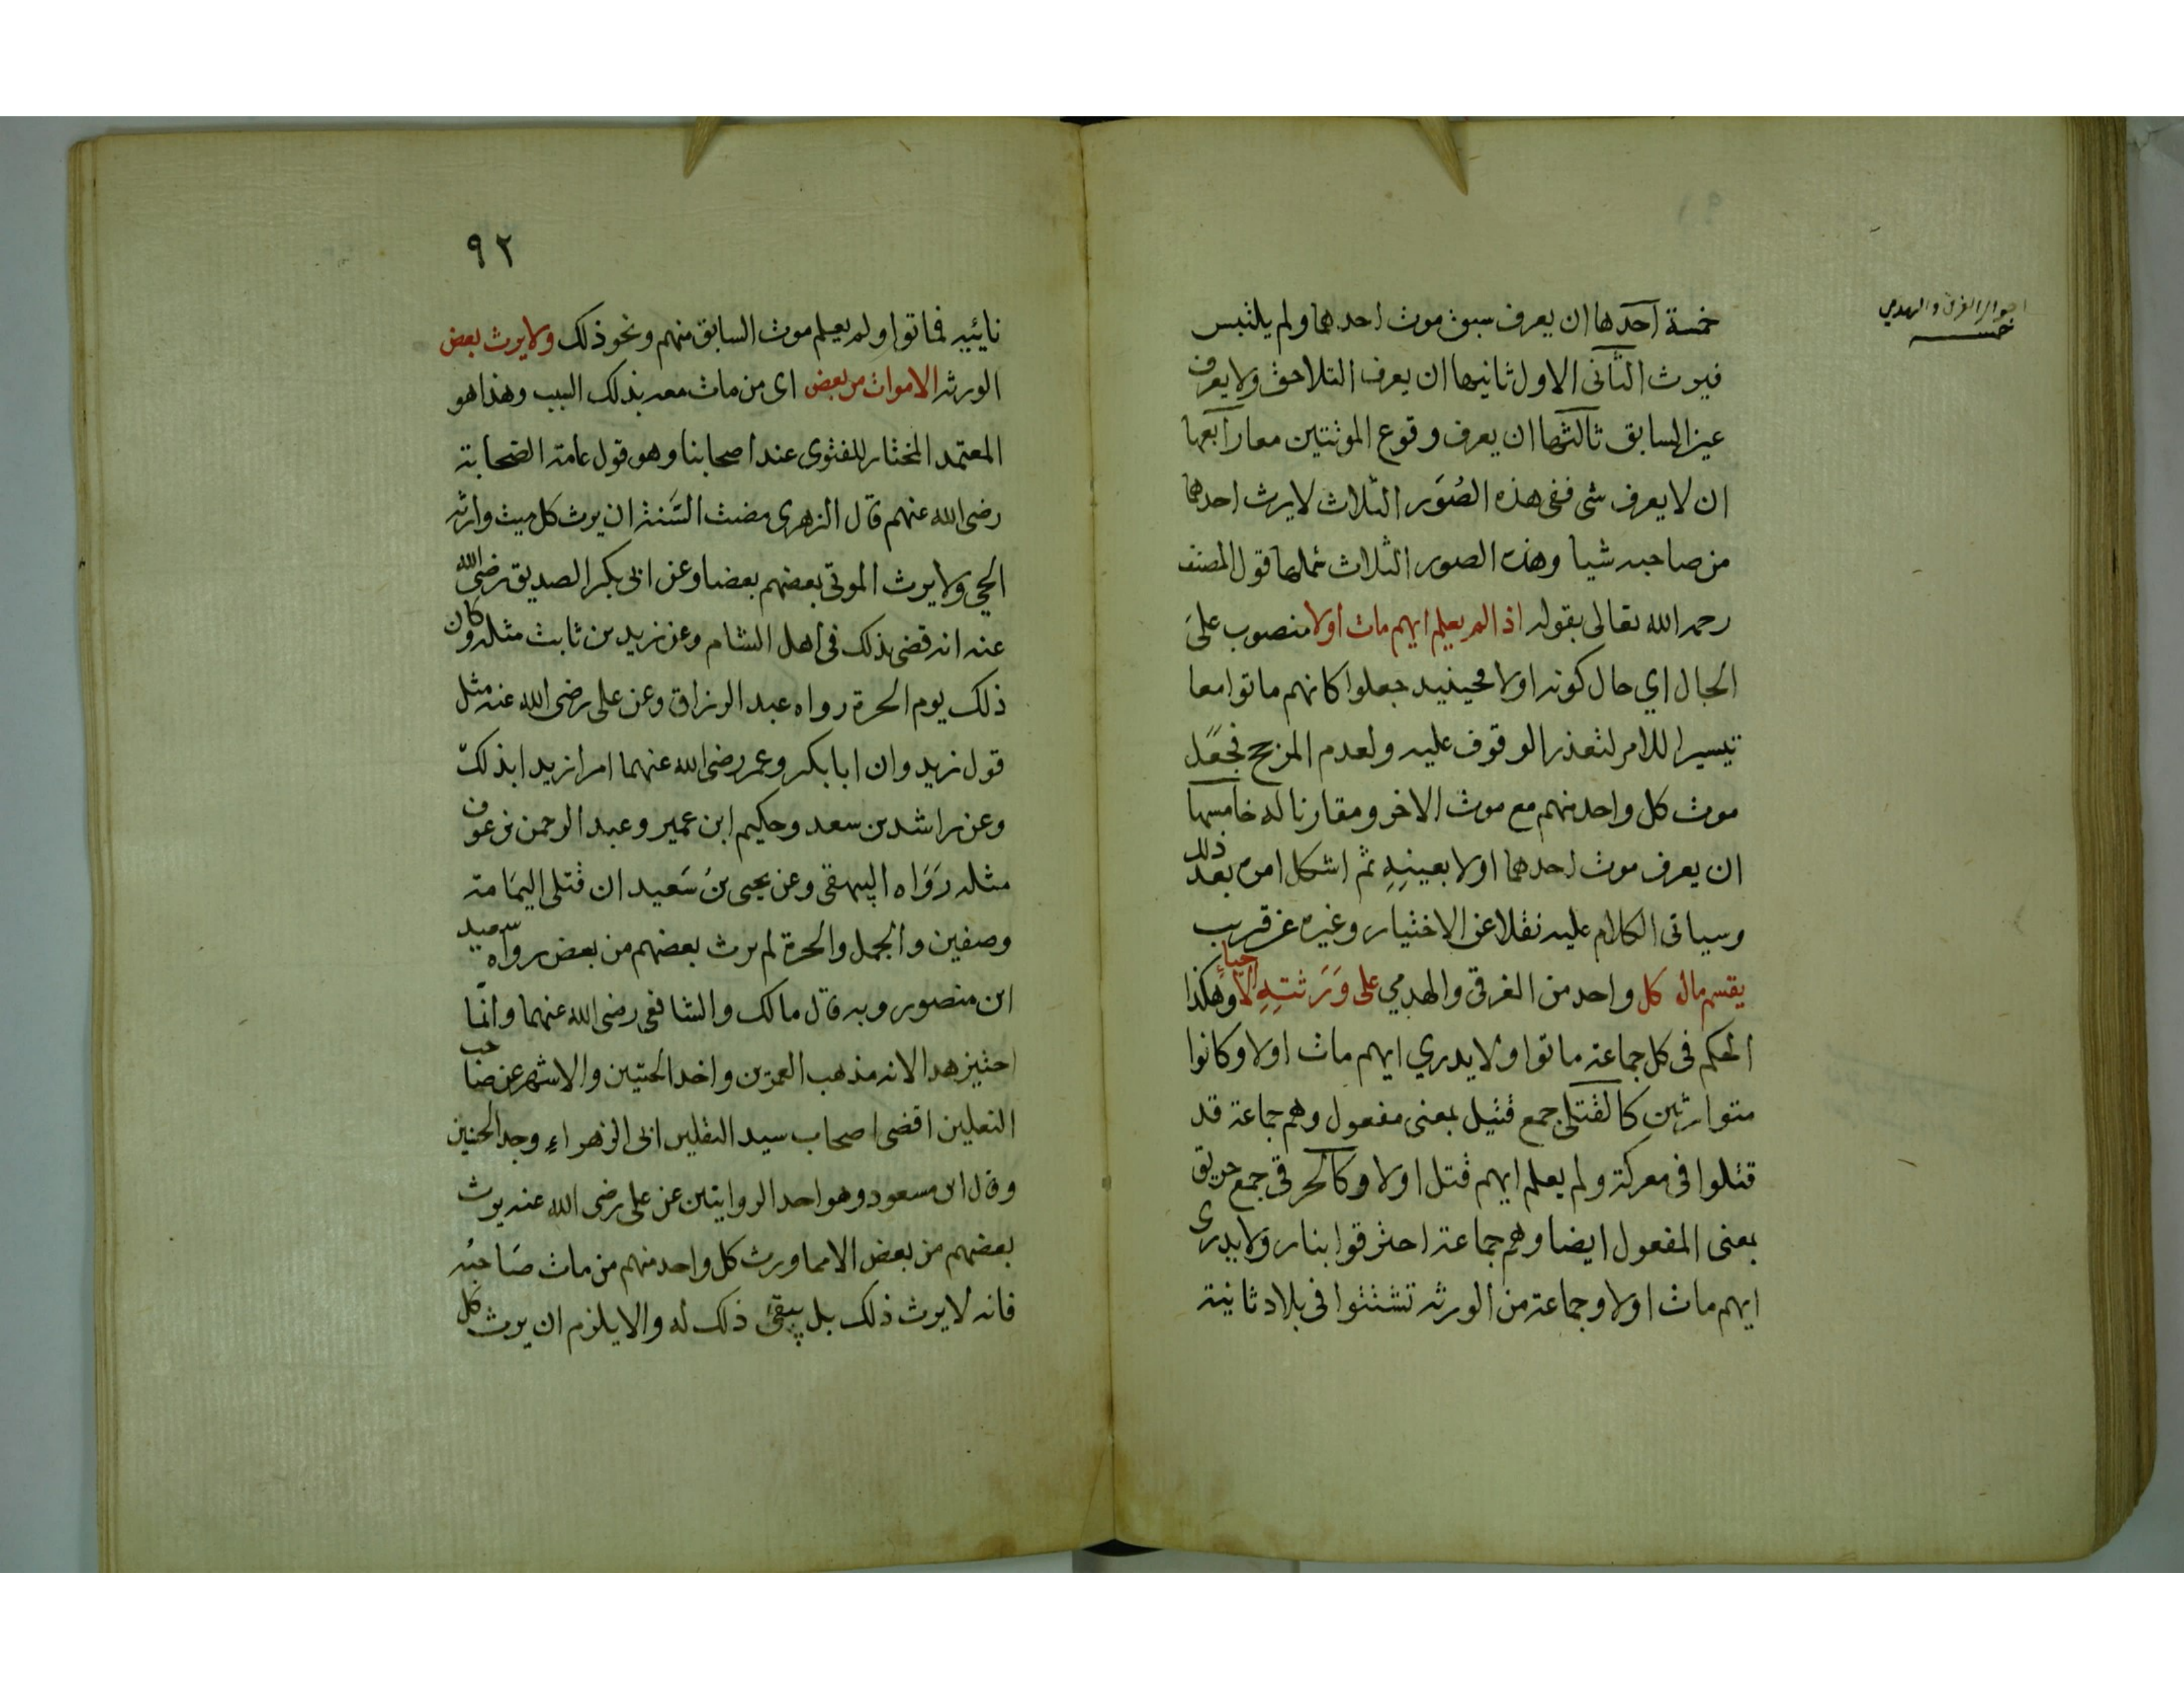 احوال الغرقى والهدمي
خمسة
خمسة احدها ان يعرف سبق موت احدهما ولم يلتبس
فيرث الثانى الاول ثانيها ان يعرف التلاحق ولا يعرف
عين السابق ثالثها ان يعرف وقوع الموتتين معا رابعها
ان لا يعرف شى ففى هذه الصُوَر الثلاث لا يرث احدهما
من صاحبه شيا وهذه الصور الثلاث شملها قول المصنف
رحمه الله تعالى بقوله اذا لم يعلم ايهم مات اولا منصوب على
الحال اي حال كونه اولا فحينيد جعلوا كانهم ماتوا معا
تيسيرا للامر لتعذر الوقوف عليه ولعدم المرجح فجعل
موت كل واحد منهم مع موت الاخر ومقارنا له خامسها
ان يعرف موت احدهما اولا بعينِهِ ثم اشكل امره بعد ذلك
وسياتى الكلام عليه نقلا عن الاختيار وغيره عن قريب
يقسم مال كل واحد من الغرقى والهدمي على وَرَثتِهِ الاحيا وهكذا
الحكم فى كل جماعة ماتوا ولا يدري ايهم مات اولا وكانوا
متوارثين كالقتلى جمع قتيل بمعنى مفعول وهم جماعة قد
قتلوا فى معركة ولم يعلم ايهم قتل اولا وكالحرقى جمع حريق
بمعنى المفعول ايضا وهم جماعة احترقوا بنار ولا يدرى
ايهم مات اولا وجماعة من الورثة تشتتوا فى بلاد ثانية
٩٢
نايئيه فماتوا ولم يعلم موت السابق منهم ونحو ذلك ولا يرث بعض
الورثة الاموات من بعض اى من مات معه بذلك السبب وهذا هو
المعتمد المختار للفتوى عند اصحابنا وهو قول عامة الصحابة
رضى الله عنهم قال الزهرى مضت السَنة ان يرث كل ميت وارثه
الحي ولا يرث الموتى بعضهم بعضا وعن ابى بكر الصديق رضى الله
عنه انه قضى بذلك فى اهل الشام وعن زيد بن ثابت مثله وكان
ذلك يوم الحرة رواه عبد الرزاق وعن على رضى الله عنه مثل
قول زيد وان ابا بكر وعمر رضى الله عنهما امرا زيدا بذلك
وعن راشد بن سعد وحكيم ابن عمير وعبد الرحمن بن عوف
مثله رَوَاه البيهقى وعن يحيى بنُ سَعيد ان قتلى اليمَامة
وصفين والجمل والحرة لم يرث بعضهم من بعض رواه سعيد
ابن منصور وبه قال مالك والشافعى رضى الله عنهما وانّما
اختير هدا لانه مذهب العمرين واخد الحتيين والاشهر عن صاحب
النعلين اقضى اصحاب سيد الثقلين ابى الزهراء وجد الحنين
وقال ابن مسعود وهو احد الروايتين عن على رضى الله عنه يرث
بعضهم من بعض الا مما ورث كل واحد منهم من مات صَاحبُه
فانه لا يرث ذلك بل يبقى ذلك له والا يلزم ان يرث كل